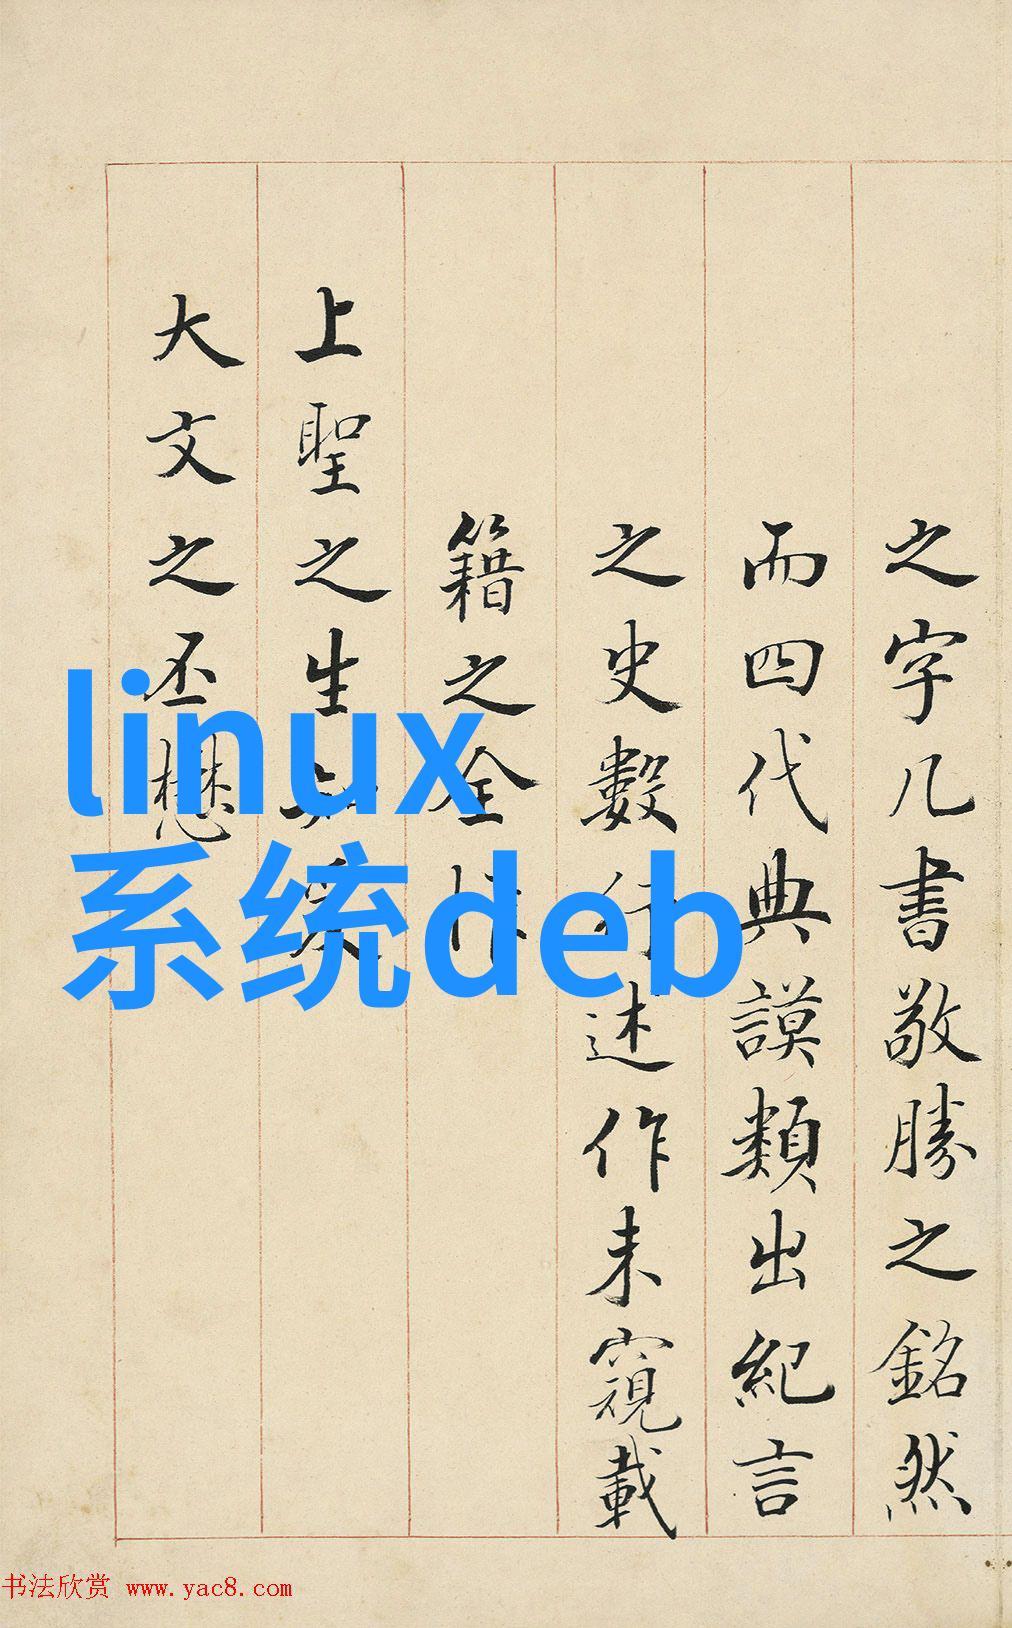 之字几書敬勝之銘然
而四代典謨類出紀言
之史數行述作未窺載
籍之全惟
上聖之生知爰
大文之丕懋
linux
系统deb
书法欣赏 www.yac8.com